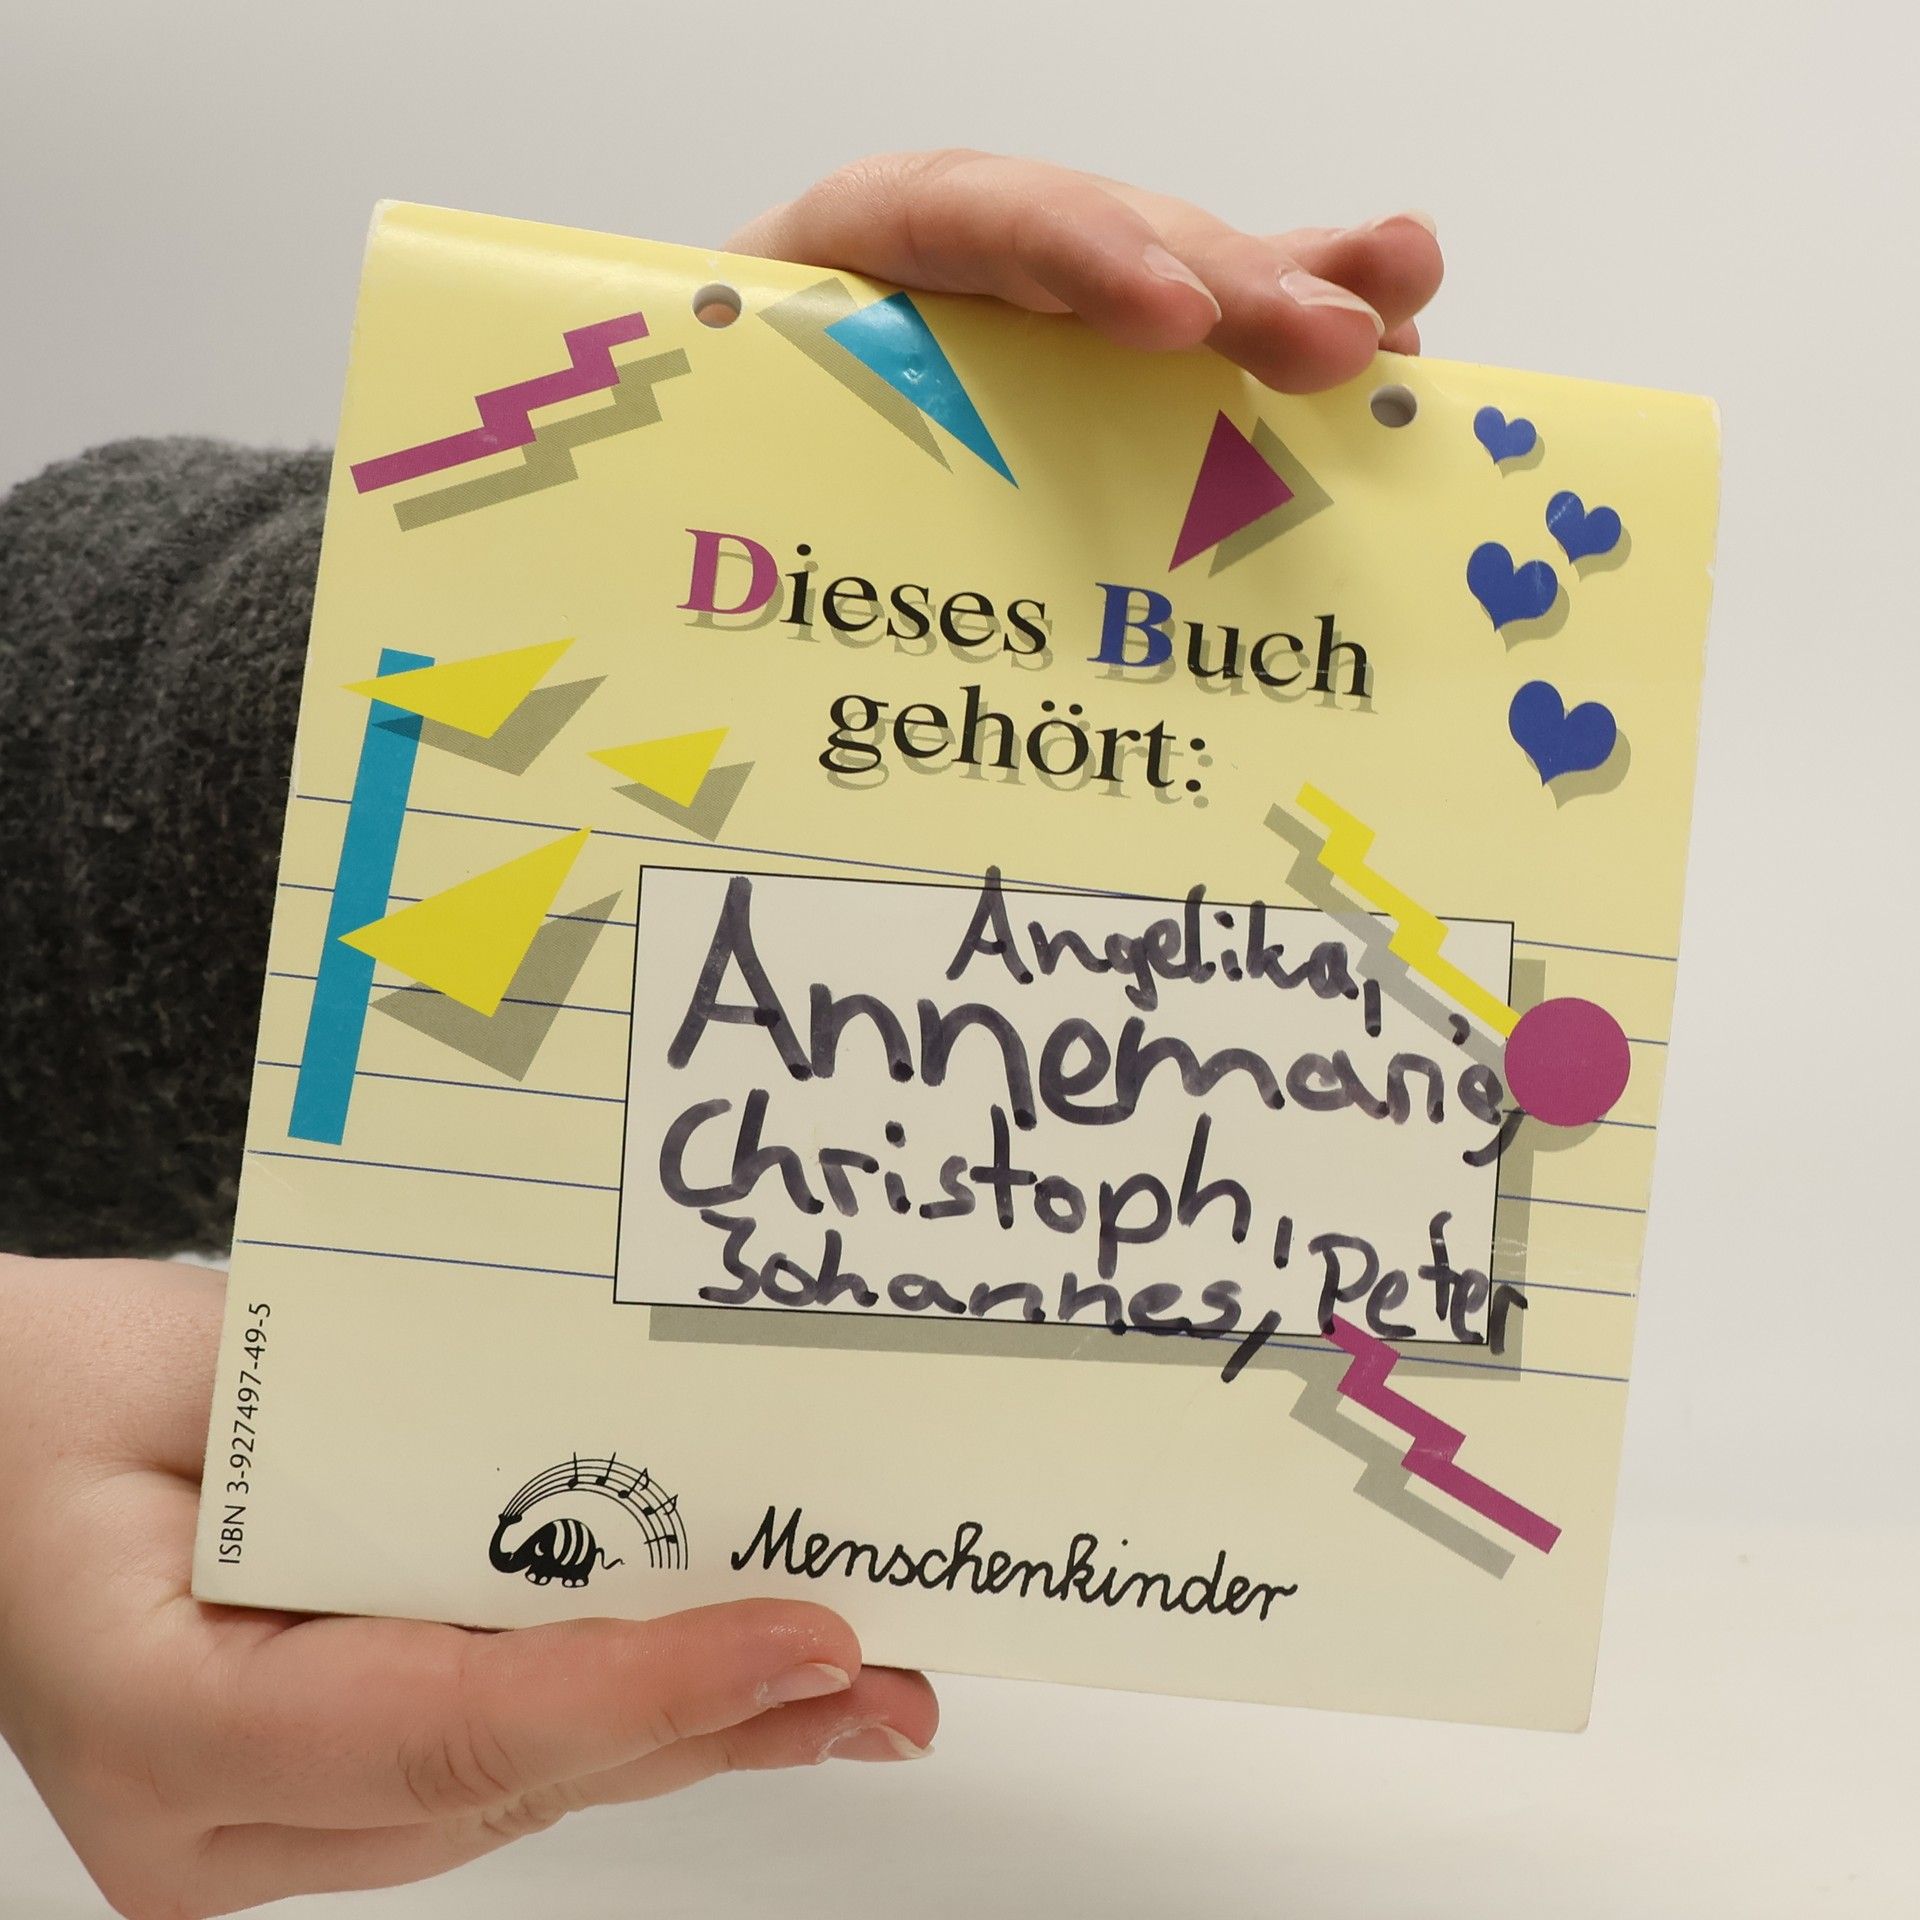 Dieses Buch
gehört:
Angelika,
Annemarie,
Christoph,
Johannes, Peter
ISBN 3-927497-49-5
Menschenkinder